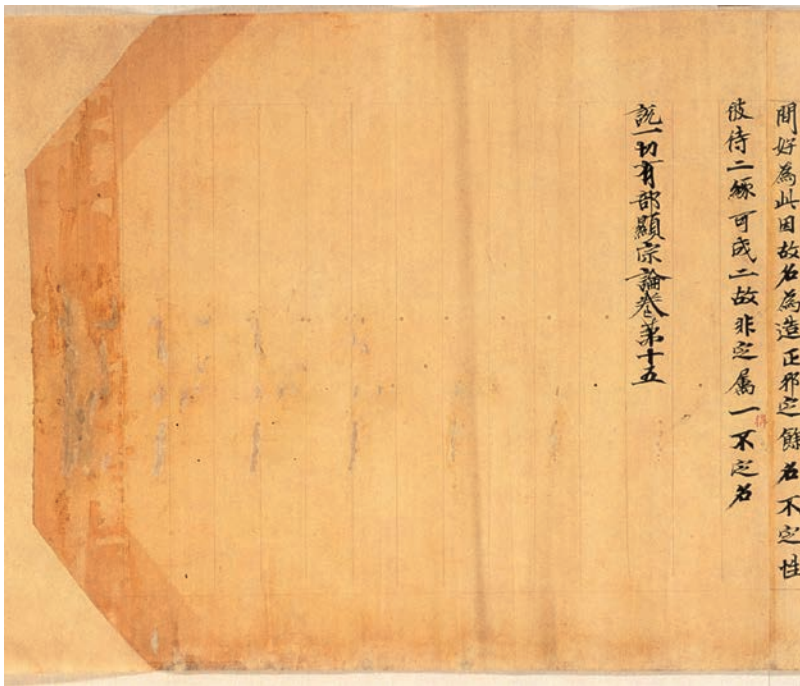 間好為此因故名為造正邪定餘名不定性
彼待二緣可成二故非定属一得不定名
說一切有部顯宗論卷第十五